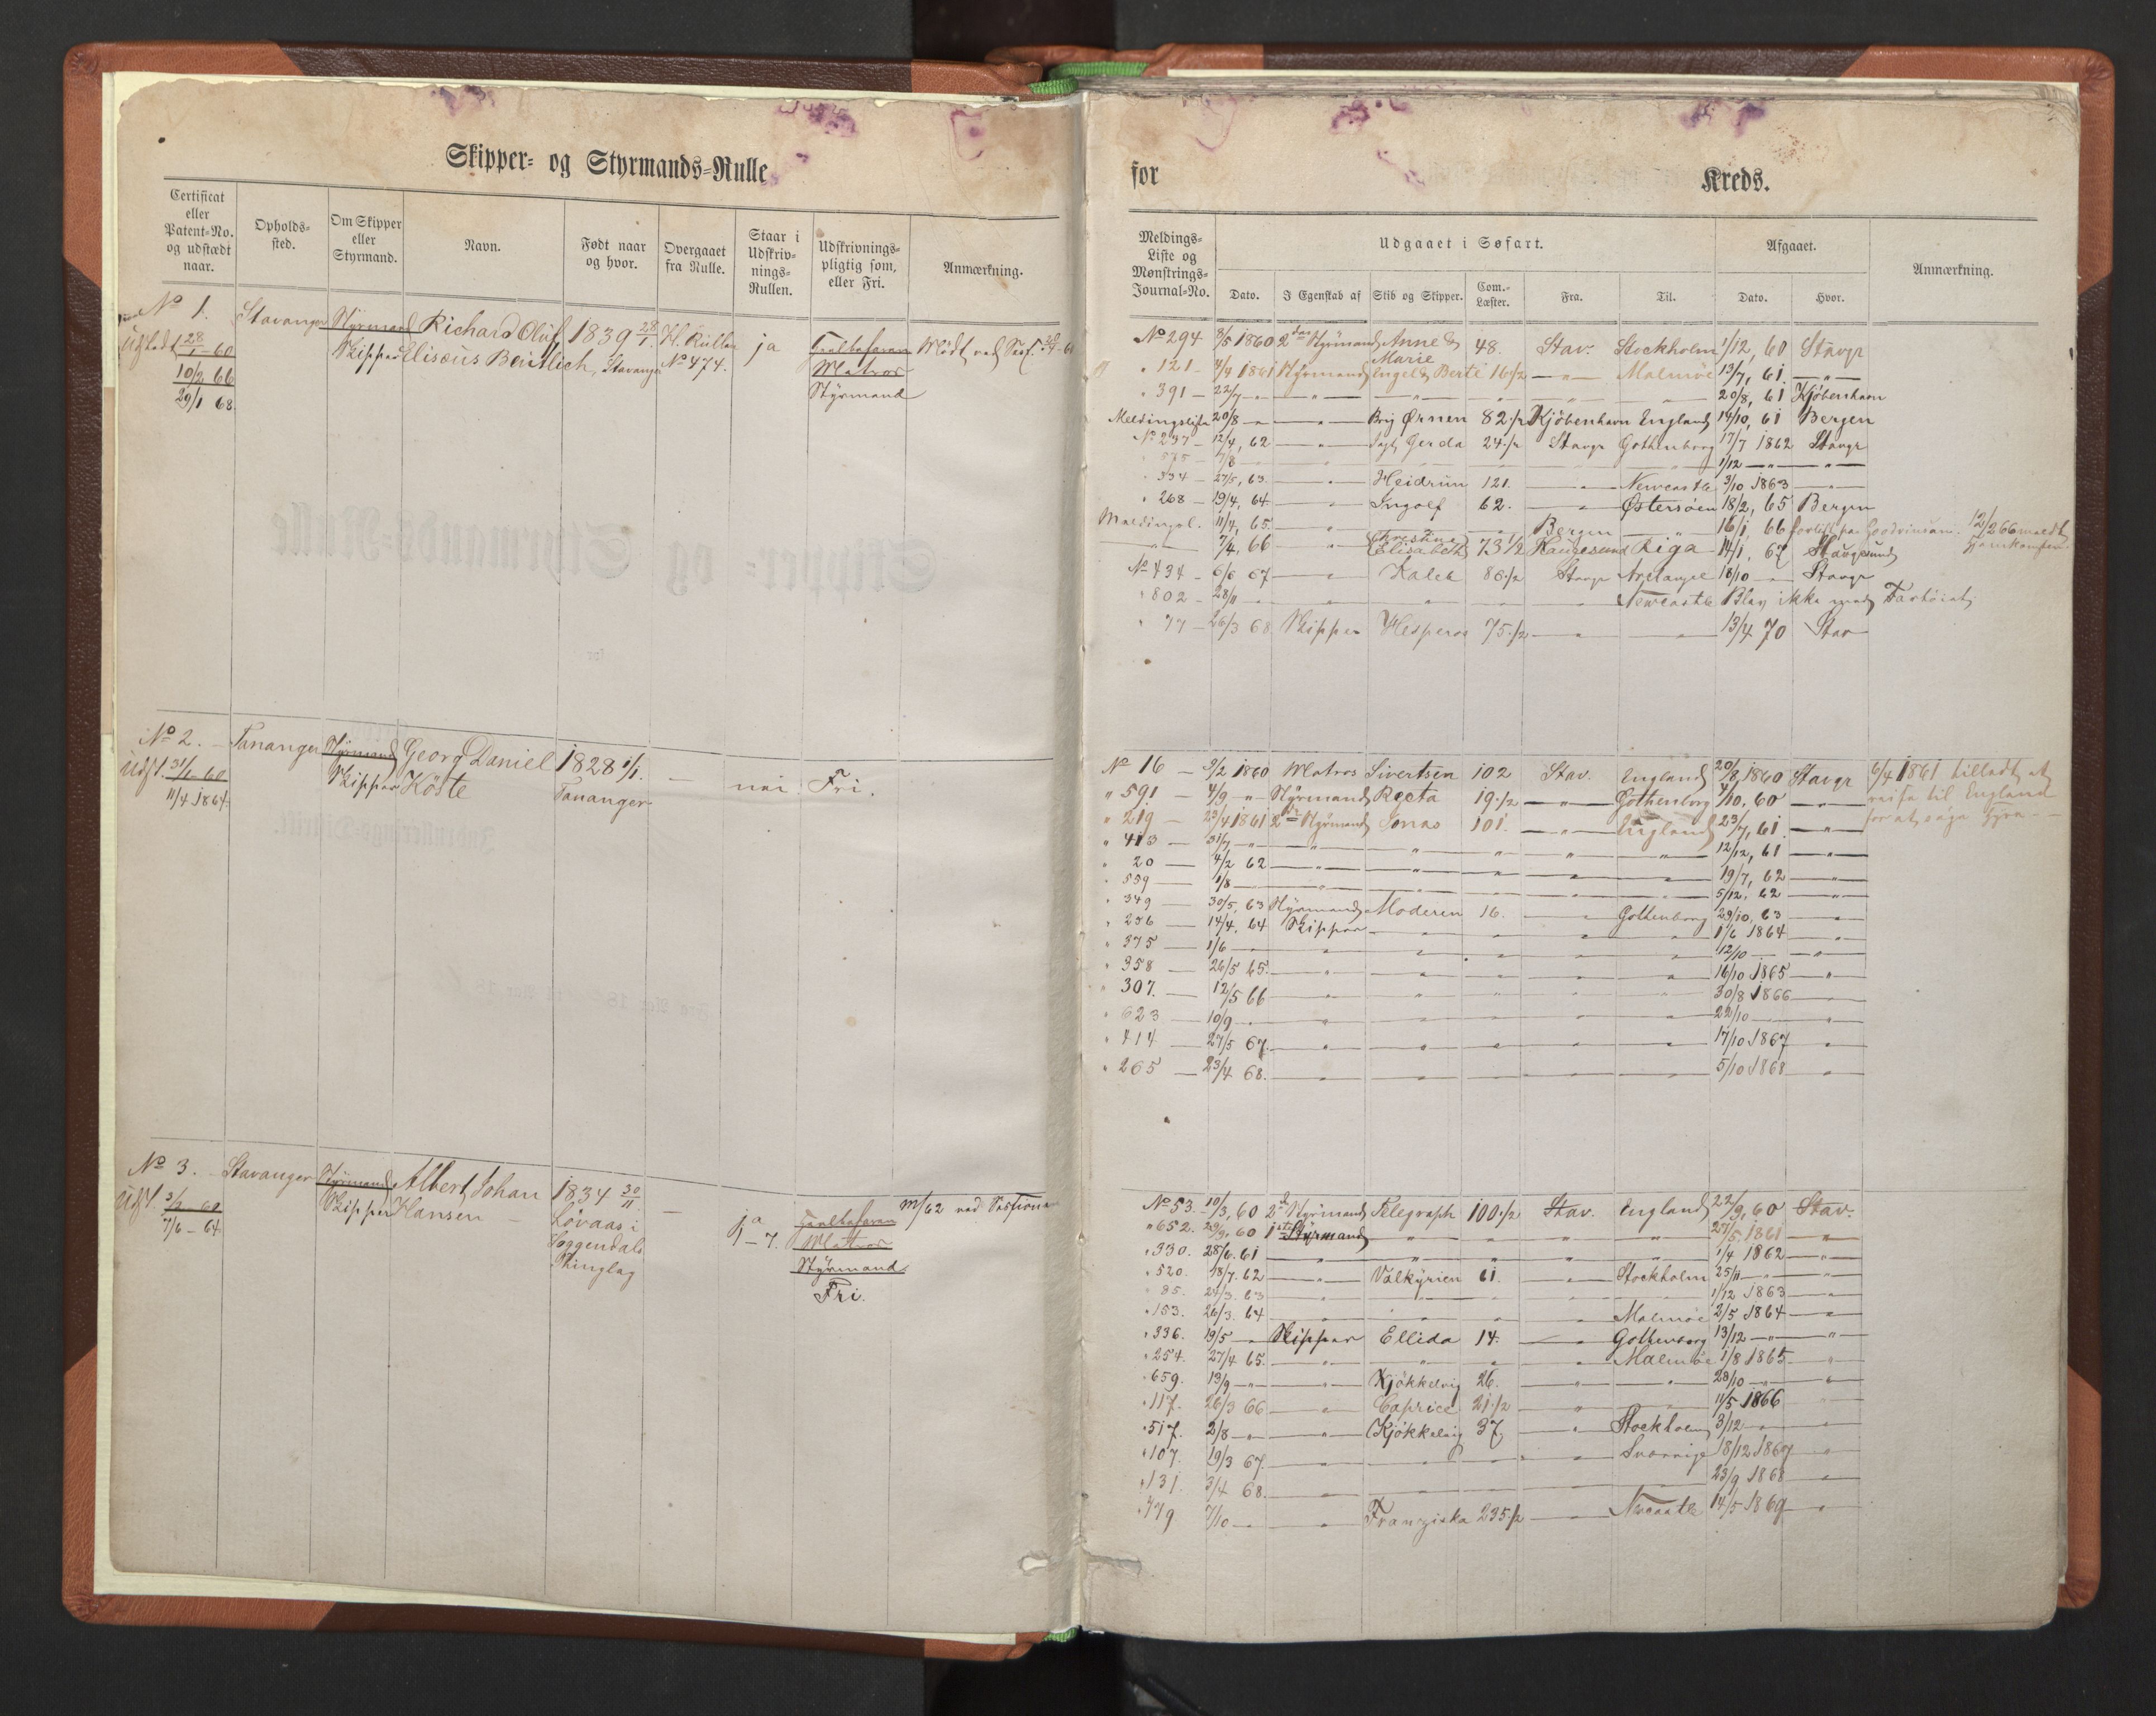 Skipper- og Styrmands-Rulle
Certificat eller Patent-No. og udstædt naar. Opholds-sted. Om Skipper eller Styrmand. Navn. Født naar og hvor. Overgaaet fra Rulle. Staar i Udskriv-nings-Rullen. Udskrivnings-pligtig som, eller Fri. Anmærkning.
No 1. Stavanger Styrmand Richard Oluf 1839 28/1. H. Rullen ja
Udstedt 28/1-60 Skipper Elisæus Bentlich, Stavanger No 474. Matros
10/2 66 Styrmand
29/1 68.
No 2. Tananger Styrmand Georg Daniel 1828 1/1. — nei Fri.
Udst. 31/1-60 Skipper Köste Tananger
11/4 1864.
No 3. Stavanger Styrmand Albert Johan 1834 30/11 — ja 1-7. ved Sessionen
Udst. 3/2-60 Skipper Hansen Løvaas i Matros
7/6-64. Soggendals Styrmand
Thinglag Fri.
for Kreds.
Meldings-Liste og Mønstrings-Journal-No. Udgaaet i Søfart. Afgaaet. Anmærkning.
Dato. I Egenskab af Skib og Skipper. Com.-Læster. Fra. Til. Dato. Hvor.
No 294 8/5 1860 2den Styrmand Anne & Marie 48. Stav. Stockholm 1/12, 60 Stavgr
" 121 - 4/4 1861 Styrmand 16 1/2 — " — Malmöe 13/7, 61. — " —
" 391 - 22/7 — " — 20/8, 61 Kjöbenhavn
Meldingsliste 20/8 — " — Brig Ørnen 82 1/2 Kjöbenhavn England 14/10, 61 Bergen
No 237 - 12/4, 62 — " — Gerda 24 1/2 Stavgr Gothenborg 17/7 1862 Stavgr
" 575 - 7/8 — " — 1/12 — " —
" 334 - 27/5, 63. — " — Heidrun 121. — " — Newcastle 3/10 1863 — " —
" 268 - 19/4, 64. — " — Ingolf 62. — " — Østersöen 18/2, 65 Bergen
Meldingsl. 11/4, 65. — " — Bergen — " — 16/1, 66 12/2 66 meldt
— " — 7/4, 66 — " — Christine Elisabeth 73 1/2 Haugesund Riga 14/1, 67 Haugesund hjemkommen
No 434 - 6/6 67 — " — Kaleb 86 1/2 Stavgr Archangel 18/10 — Stavgr
" 802 - 28/11 — " — Newcastle Blev ikke med Fartöiet
" 77 - 26/3 68 Skipper Hesperos 75 1/2 — " — 13/4 70 Stav
No 16 - 9/2 1860 Matros Sivertsen 102 Stav. England 20/8 1860 Stavgr 6/4 1861 tilladt at
" 591 - 4/9 — " — Styrmand Recta 19 1/2 — " — Gothenborg 4/10, 60 — " — reise til England
" 219 - 23/4 1861 2den Styrmand Jonas 101. — " — England 23/7, 61. — " — for at söge Hyre. —
" 413 — 31/7 — " — 12/12, 61 — " —
" 20 — 4/2 62 — " — 19/7, 62 — " —
" 559 — 1/8 — " — 5/12, 62 — " —
" 349 — 30/5, 63 Styrmand Moderen 16. — " — Gothenborg 29/10, 63 — " —
" 236 — 14/4, 64 Skipper — " — 1/6 1864 — " —
" 375 — 1/6 — " — 12/10 — " —
" 358 — 26/5 65. — " — 16/10 1865 — " —
" 307. — 12/5 66 — " — 30/8 1866 — " —
" 623 — 10/9 — " — 22/10 — " —
" 414 — 27/5 67. — " — 17/10 1867 — " —
" 265 — 23/4 68. — " — 5/10 1868 — " —
No 53. 10/3, 60 2d Styrmand Telegraph 100 1/2 Stav. England 22/9, 60 Stav.
" 652. 29/9, 60 1ste Styrmand — " — 27/5 1861 — " —
" 330. 28/6. 61 — " — 1/4 1862 — " —
" 520. 18/7. 62 — " — Valkyrien 61. — " — Stockholm 25/11 — " —
" 85. 24/3. 63 — " — 1/12 1863 — " —
" 153. 26/3. 64 — " — Malmöe 2/5 1864 — " —
" 336. 19/5 — Skipper Ellida 14. — " — Gothenborg 13/12 — " —
" 254. 27/4 65. — " — Malmöe 1/8 1865 — " —
" 659. 13/9 — " — Kjökkelvig 26. — " — 28/10 — " —
" 117. 26/3 66 — " — Caprice 21 1/2 — " — 11/5 1866
" 517. 2/8 — " — Kjökkelvig 37. — " — Stockholm 3/12 — " —
" 107. 19/3 67. — " — Sverrige 18/12 1867 — " —
" 131. 3/4 68. — " — 23/9 1868 — " —
" 779 7/10 — " — Franziska 235 1/2 — " — Newcastle 14/5 1869 — " —